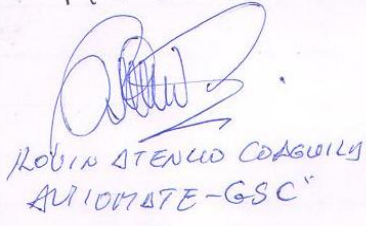 ROVIN ATENCIO COAGUILA
AUTOMATE-GSC"